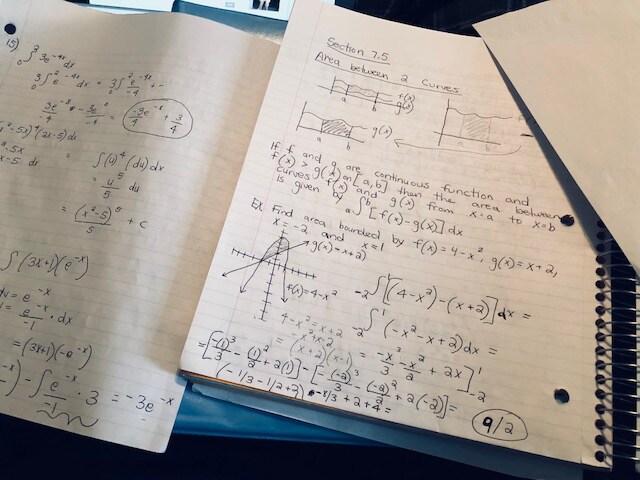 15) ₀∫² 3e^-4x dx
3 ₀∫² e^-4x dx = 3∫ e^-4x/-4
3e^-8/-4 - 3e^0/-4 = -3e^-8/4 + 3/4
-5x)^4 (2x-5) dx
∫(u)^4 (du) dx
= u^5/5 du
= (x²-5)^5/5 + C
∫(3x+1)(e^-x)
dv = e^-x
v = e^-x/-1 · dx
= (3x+1)(-e^-x)
- ∫ e^-x/-1 · 3 = -3e^-x
Section 7.5
Area between 2 Curves
f(x)
g(x)
a b
g(x)
a b
If f and g are continuous function and
f(x) > g(x) on [a,b] then the area between
curves f(x) and g(x) from x=a to x=b
is given by a∫b [f(x)-g(x)] dx
Ex Find area bounded by f(x)=4-x², g(x)=x+2,
x=-2 and x=1
g(x)=x+2
f(x)=4-x²
-2∫1 [(4-x²)-(x+2)] dx =
4-x²=x+2
-2∫1 (-x²-x+2) dx =
(x+2)(x-1)
= -x³/3 - x²/2 + 2x]1 -2
= [-(1)³/3 - (1)²/2 + 2(1)] - [-(-2)³/3 - (-2)²/2 + 2(-2)] =
(-1/3 - 1/2 + 2) - 8/3 + 2 + 4 =
9/2